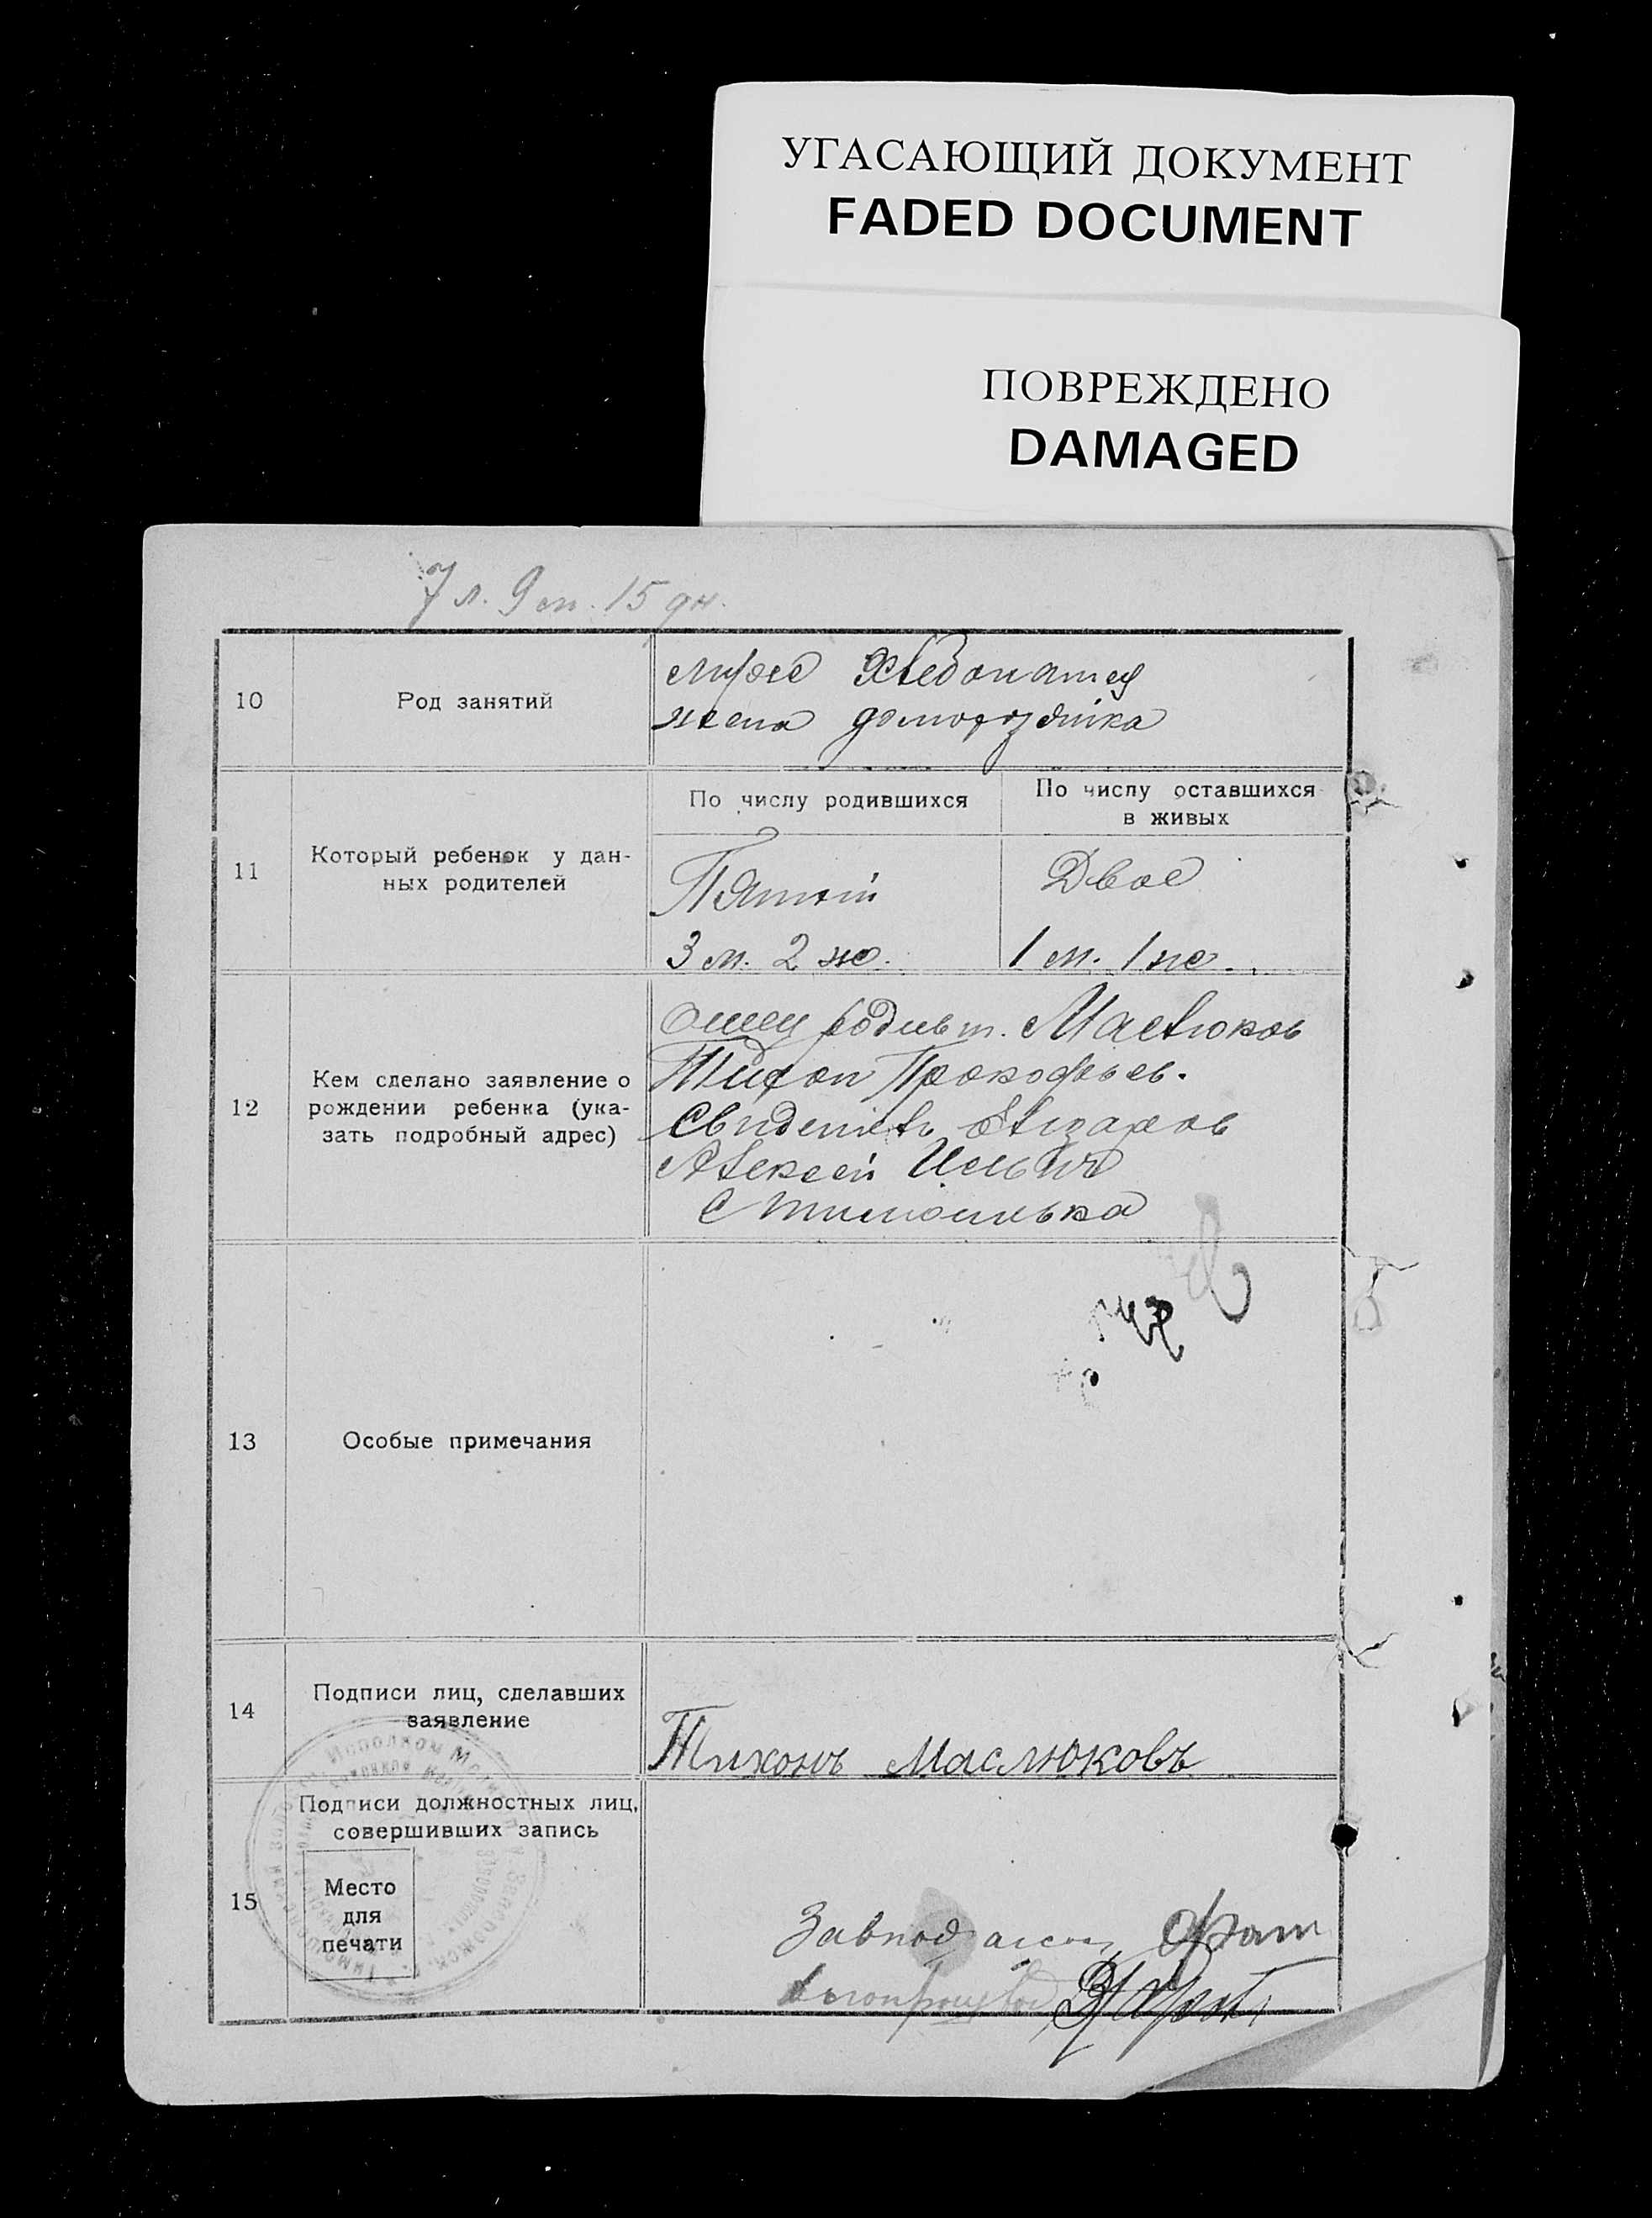 УГАСАЮЩИЙ ДОКУМЕНТ
FADED DOCUMENT
ПОВРЕЖДЕНО
DAMAGED
7 л. 9 м. 15 дн.
10
Род занятий
муже Хлебопашец
жена домохозяйка
11
Который ребенок у дан-
ных родителей
По числу родившихся
Пятый
3 м. 2 ж.
По числу оставшихся
в живых
Двое
1 м. 1 ж.
12
Кем сделано заявление о
рождении ребенка (ука-
зать подробный адрес)
Отец Маслюков
Тихон Прокофьев.
Свидетель
Алексей Ильич
13
Особые примечания
14
Подписи лиц, сделавших
заявление
Тихонъ Маслюковъ
15
Подписи должностных лиц,
совершивших запись
Место
для
печати
Исполком